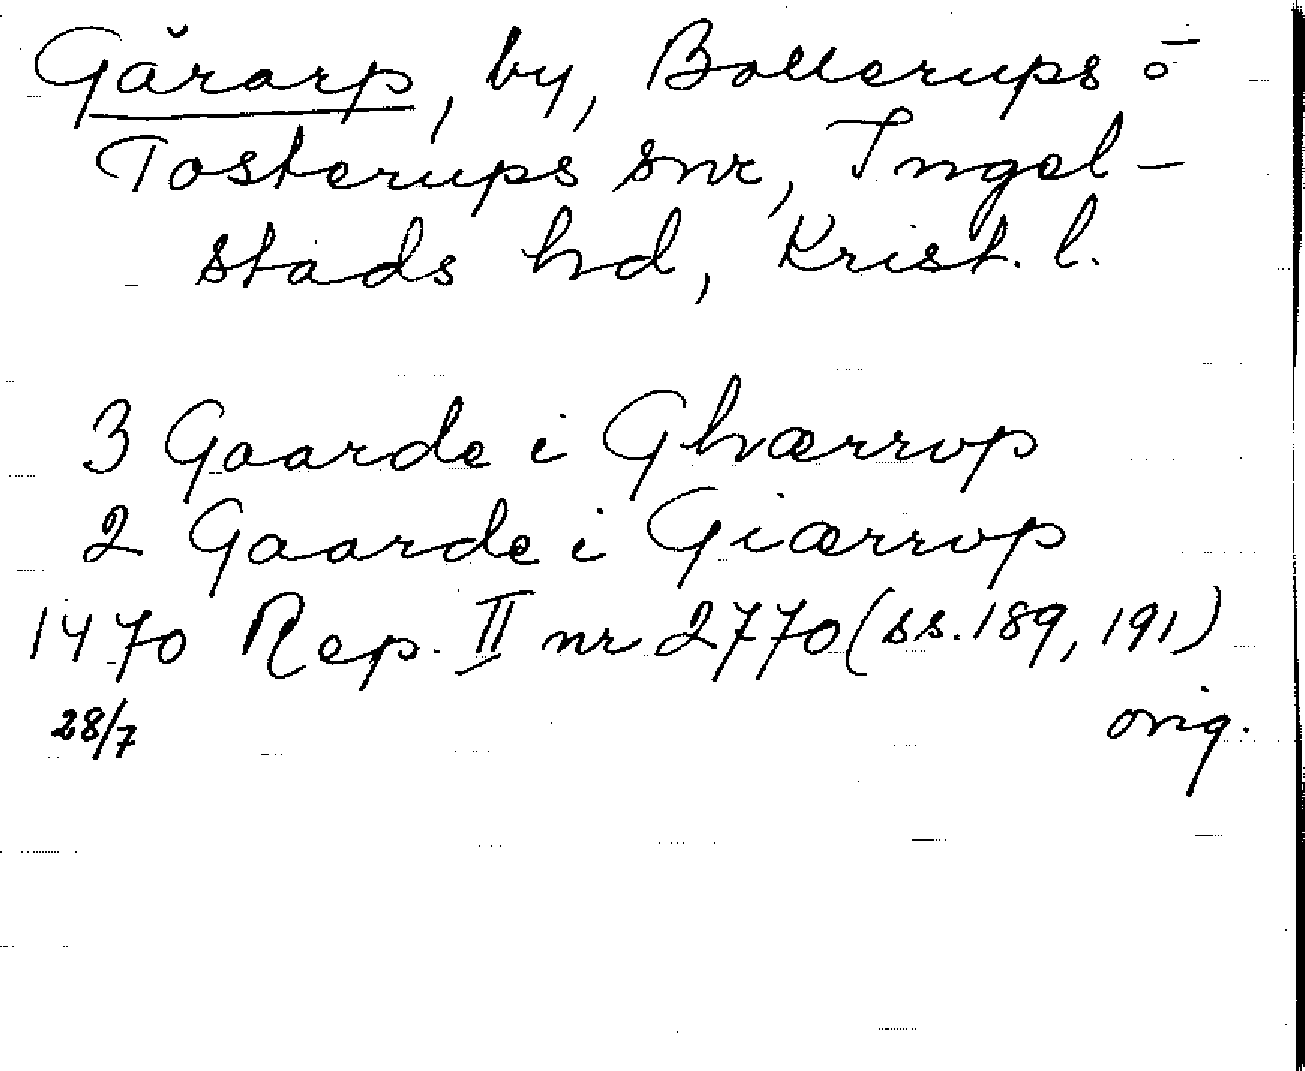 Gårarp, by, Bollerups o
Tosterups snr, Ingel-
stads hd, Krist. l.
3 Gaarde i Ghærrvp
2 Gaarde i Giærrvp
1470 Rep. II nr 2770 (ss. 189, 191)
28/7 orig.